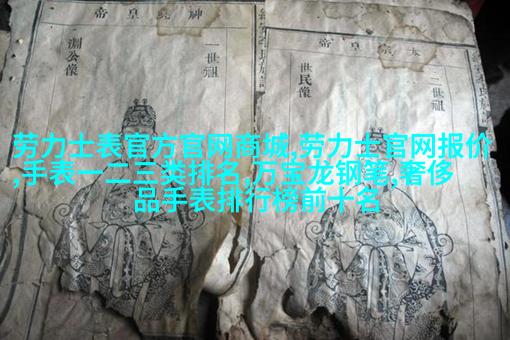 神堯皇帝
一世祖
淵公像
太宗皇帝
二世祖
世民像
劳力士表官方官网商城,劳力士官网报价
,手表一二三类排名,万宝龙钢笔,奢侈
品手表排行榜前十名